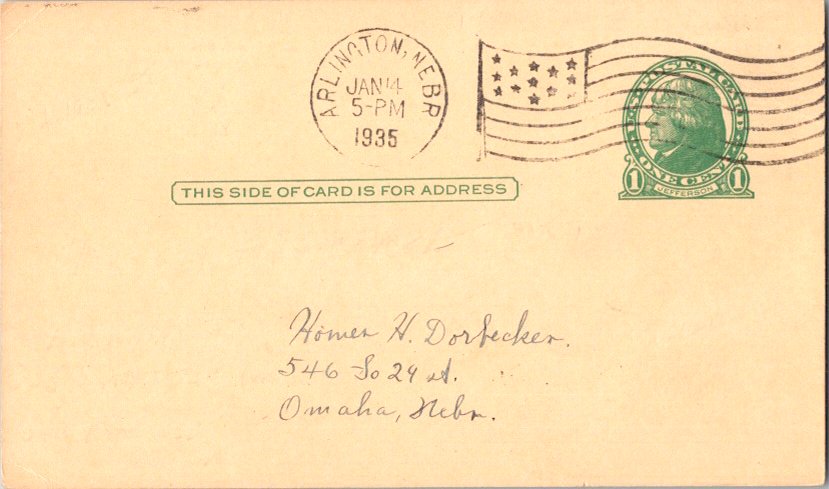 ARLINGTON, NEBR
JAN 14
5-PM
1935
U.S. POSTAL CARD
ONE CENT
1 JEFFERSON 1
THIS SIDE OF CARD IS FOR ADDRESS
Homer H. Dorbecker.
546 So 24 st.
Omaha, Nebr.